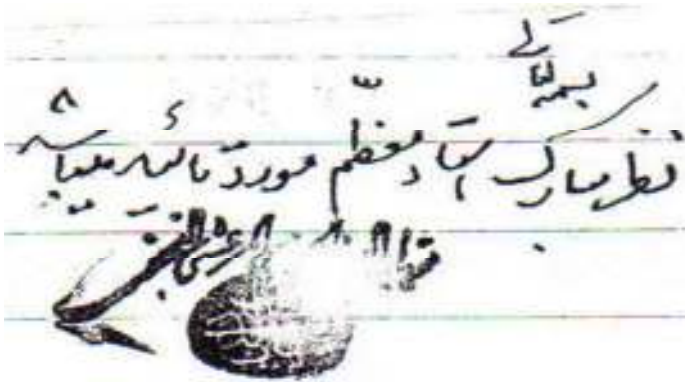 بسمه تعالی
نظر مبارک استاد معظم مورد تائید میباشد